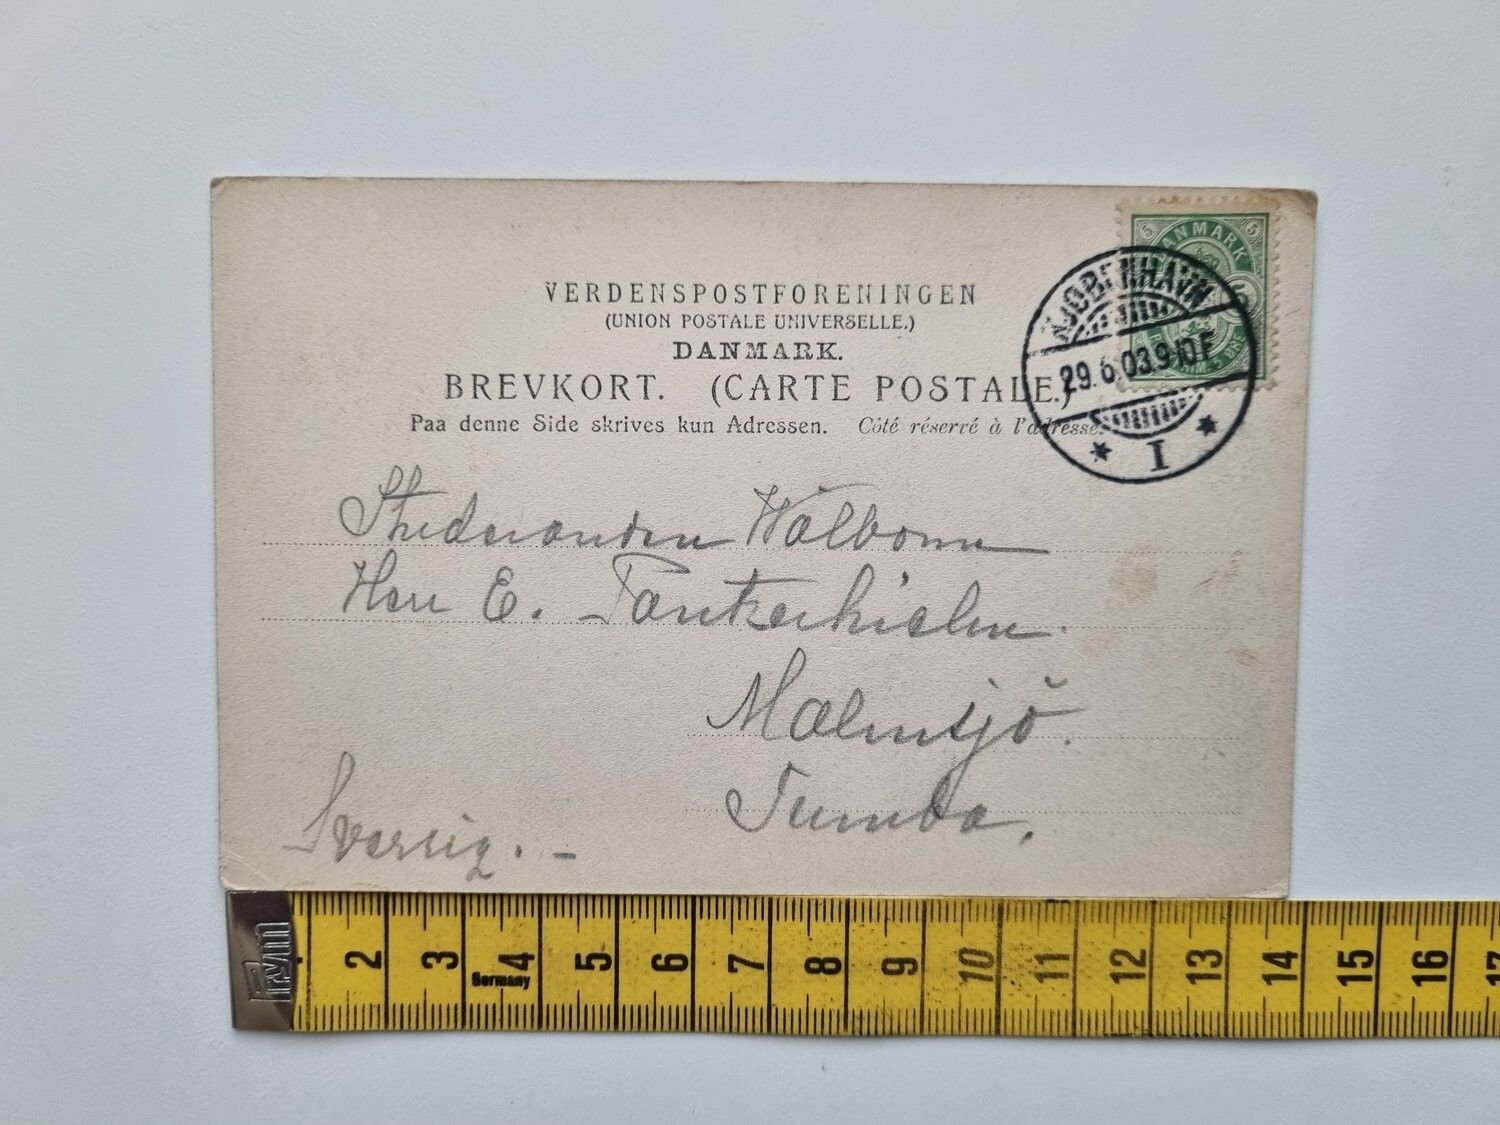 VERDENSPOSTFORENINGEN
(UNION POSTALE UNIVERSELLE.)
DANMARK.
BREVKORT. (CARTE POSTALE.)
Paa denne Side skrives kun Adressen. Côté réservé à l'adresse.
DANMARK
5 5
KJØBENHAVN
29.6.03.9-10F
I
Studeranden Wålbom
Herr E.
Malmsjö.
Tumba.
Sverrig. -
Prym
2 3 4 5 6 7 8 9 10 11 12 13 14 15 16 17
Germany